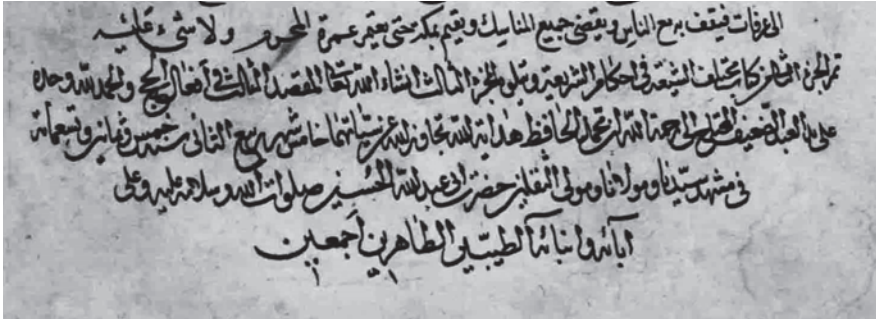 الى عرفات فيقف به مع الناس ويقضى جميع المناسك ويقيم بمكة حتى يعتمر عمرة المحرم ولا شىء عليه
تم الجزء الثانى من كتاب مختلف الشيعة فى احكام الشريعة ويتلوه الجزء الثالث انشاء الله تعالى المقصد الثالث فى أفعال الحج والحمد لله وحده
على يد العبد الضعيف المحتاج الى رحمة الله ابن محمد الحافظ هداية الله تجاوز الله عن سيئاتهما خامس شهر ربيع الثانى سنه خمس وثمانين وتسعمائة
فى مشهد سيدنا ومولانا ومولى الثقلين حضرت ابى عبد الله الحسين صلوات الله وسلامه عليه وعلى
آبائه وابنائه الطيبين الطاهرين أجمعين